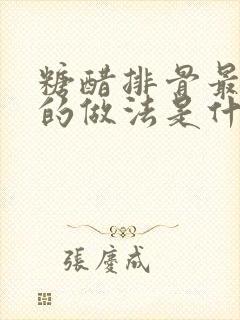 糖醋排骨最
的做法是什
張慶成